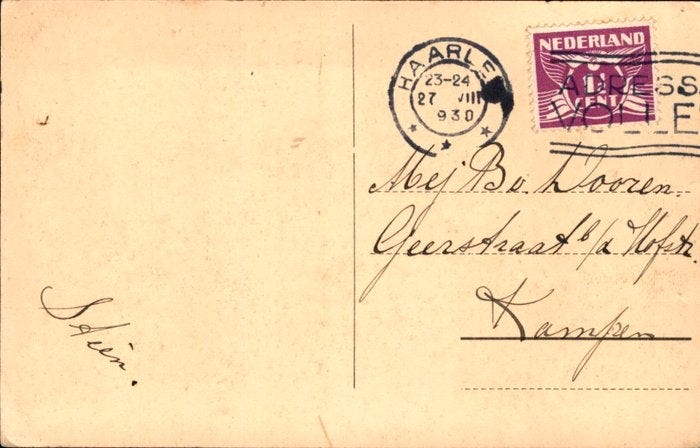 HAARLE
23-24
27 VIII
930
NEDERLAND
1½
CT
ADRESS
VOLLE
Mej Bo. Dooren.
Geerstraat b/d Hofstr.
Kampen
Stien.